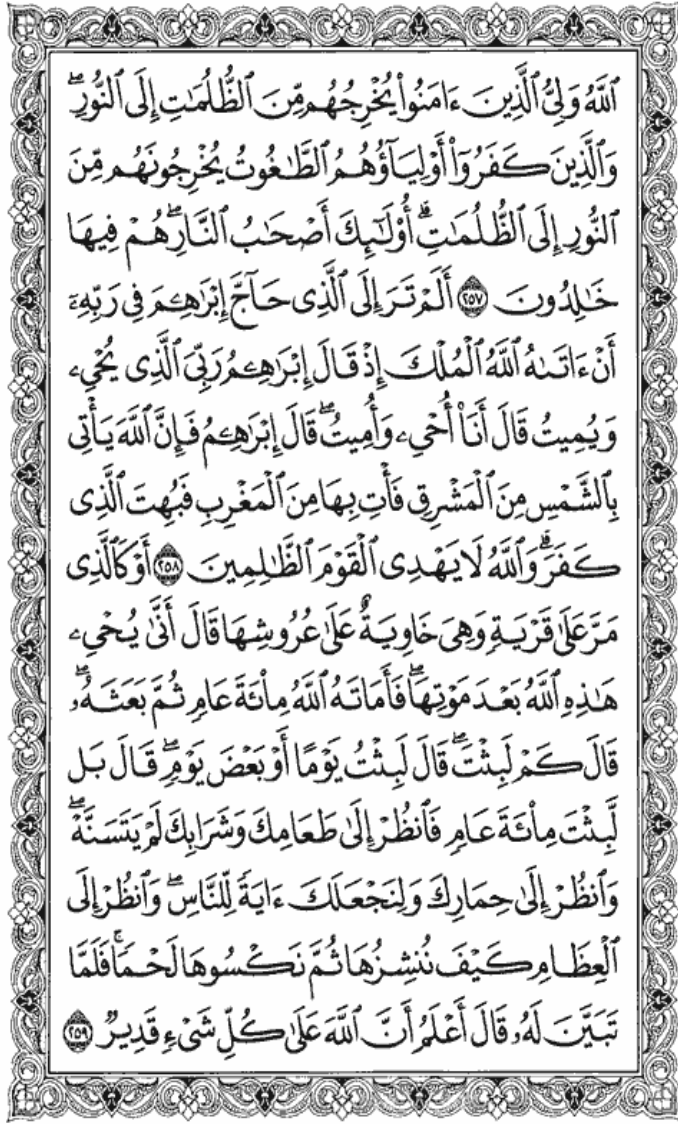 ٱللَّهُ وَلِيُّ ٱلَّذِينَ ءَامَنُوا۟ يُخْرِجُهُم مِّنَ ٱلظُّلُمَٰتِ إِلَى ٱلنُّورِۖ
وَٱلَّذِينَ كَفَرُوٓا۟ أَوْلِيَآؤُهُمُ ٱلطَّٰغُوتُ يُخْرِجُونَهُم مِّنَ
ٱلنُّورِ إِلَى ٱلظُّلُمَٰتِۗ أُو۟لَٰٓئِكَ أَصْحَٰبُ ٱلنَّارِۖ هُمْ فِيهَا
خَٰلِدُونَ ٢٥٧ أَلَمْ تَرَ إِلَى ٱلَّذِى حَآجَّ إِبْرَٰهِۦمَ فِى رَبِّهِۦٓ
أَنْ ءَاتَىٰهُ ٱللَّهُ ٱلْمُلْكَ إِذْ قَالَ إِبْرَٰهِۦمُ رَبِّىَ ٱلَّذِى يُحْىِۦ
وَيُمِيتُ قَالَ أَنَا۠ أُحْىِۦ وَأُمِيتُۖ قَالَ إِبْرَٰهِۦمُ فَإِنَّ ٱللَّهَ يَأْتِى
بِٱلشَّمْسِ مِنَ ٱلْمَشْرِقِ فَأْتِ بِهَا مِنَ ٱلْمَغْرِبِ فَبُهِتَ ٱلَّذِى
كَفَرَۗ وَٱللَّهُ لَا يَهْدِى ٱلْقَوْمَ ٱلظَّٰلِمِينَ ٢٥٨ أَوْ كَٱلَّذِى
مَرَّ عَلَىٰ قَرْيَةٍ وَهِىَ خَاوِيَةٌ عَلَىٰ عُرُوشِهَا قَالَ أَنَّىٰ يُحْىِۦ
هَٰذِهِ ٱللَّهُ بَعْدَ مَوْتِهَاۖ فَأَمَاتَهُ ٱللَّهُ مِا۟ئَةَ عَامٍ ثُمَّ بَعَثَهُۥۖ
قَالَ كَمْ لَبِثْتَۖ قَالَ لَبِثْتُ يَوْمًا أَوْ بَعْضَ يَوْمٍۖ قَالَ بَل
لَّبِثْتَ مِا۟ئَةَ عَامٍ فَٱنظُرْ إِلَىٰ طَعَامِكَ وَشَرَابِكَ لَمْ يَتَسَنَّهْۖ
وَٱنظُرْ إِلَىٰ حِمَارِكَ وَلِنَجْعَلَكَ ءَايَةً لِّلنَّاسِۖ وَٱنظُرْ إِلَى
ٱلْعِظَامِ كَيْفَ نُنشِزُهَا ثُمَّ نَكْسُوهَا لَحْمًاۚ فَلَمَّا
تَبَيَّنَ لَهُۥ قَالَ أَعْلَمُ أَنَّ ٱللَّهَ عَلَىٰ كُلِّ شَىْءٍ قَدِيرٌ ٢٥٩